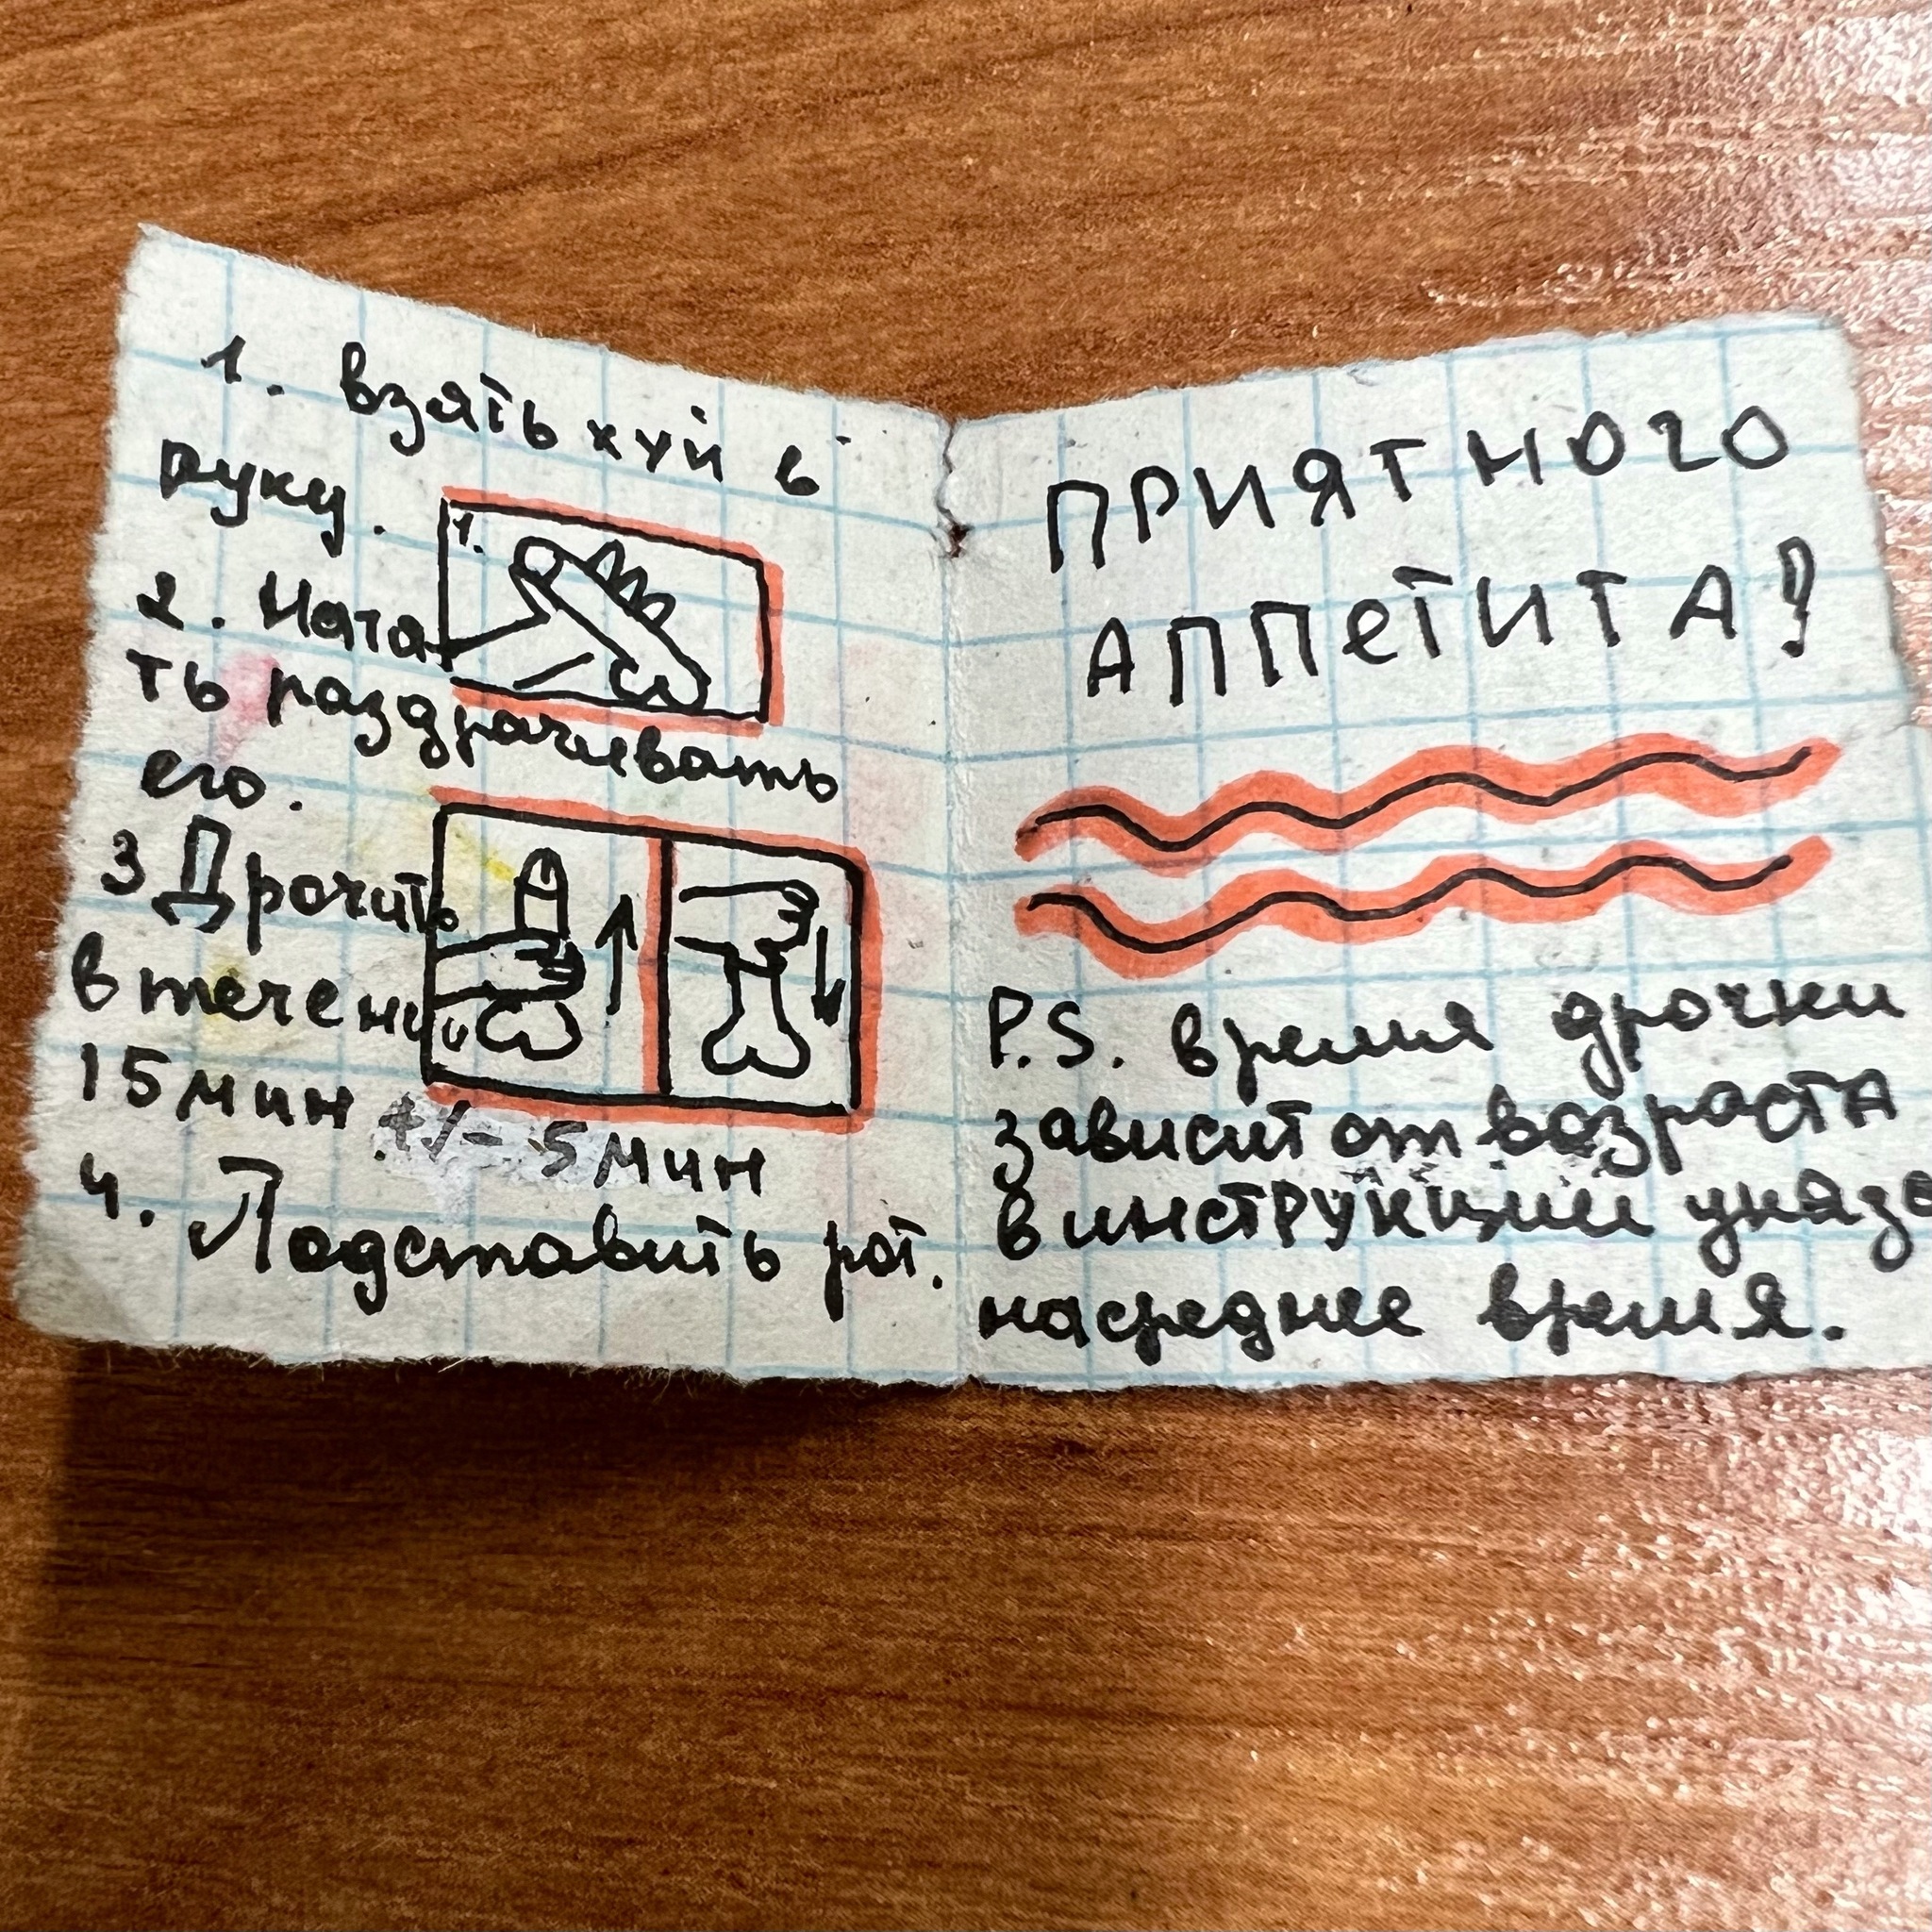 1. взять хуй в
руку.
1.
2. Нача
ть раздрачивать
его.
3 Дрочить
в течени
15 мин +/- 5 мин
4. Подставить рот.
ПРИЯТНОГО
АППеТИТА!
P.S. время дрочки
зависит от возраста
в инструкции указа
на среднее время.